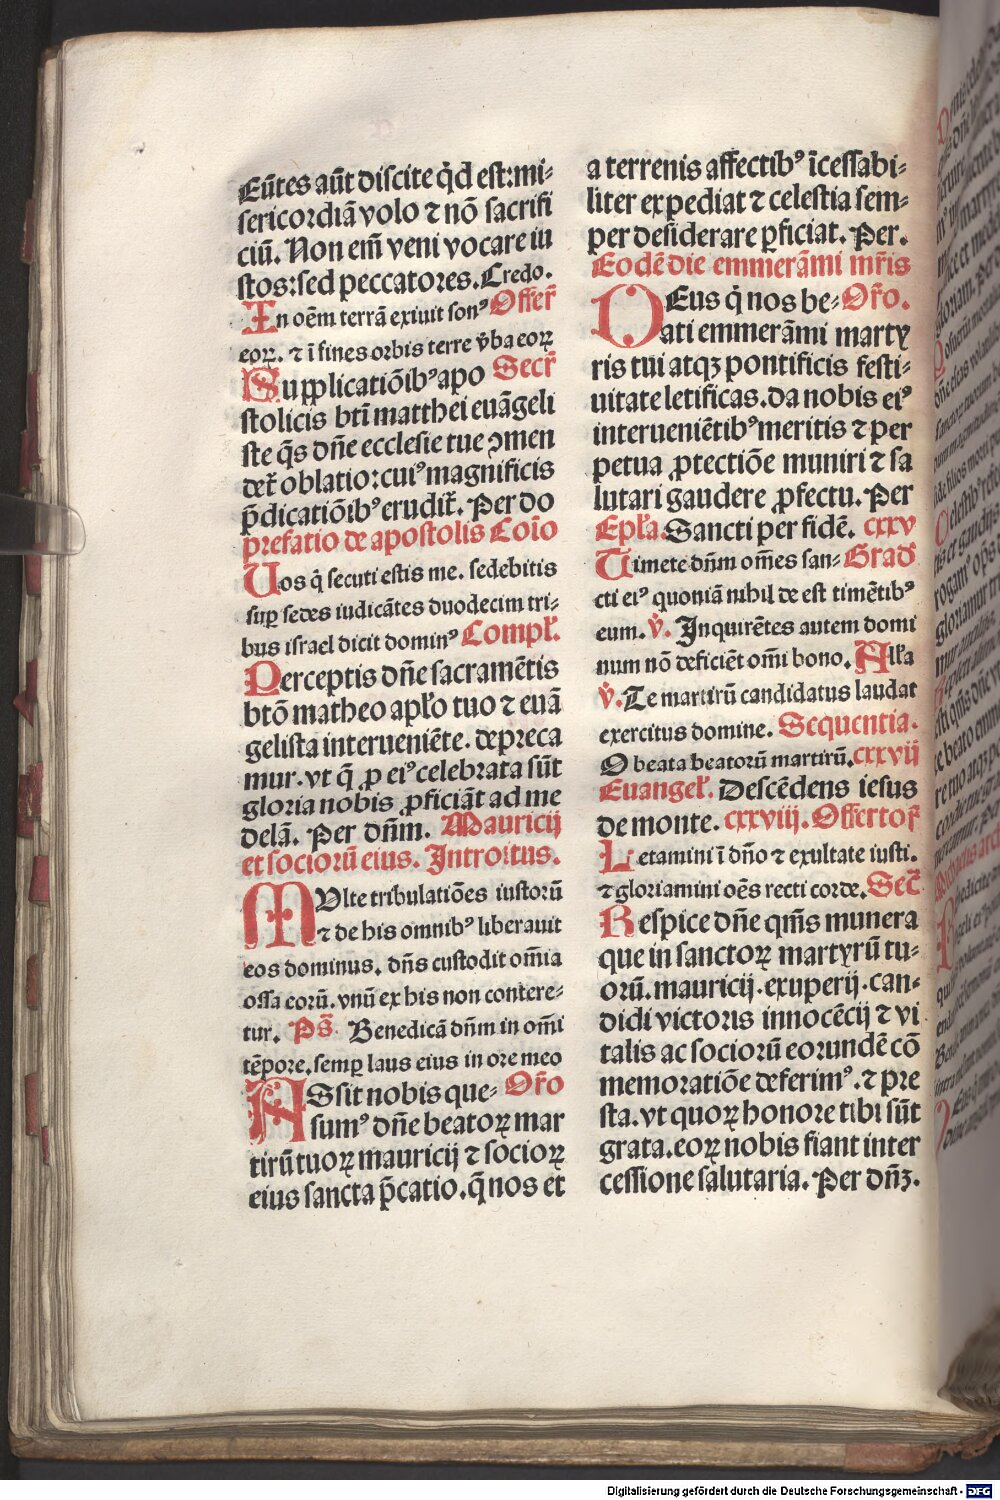 Eūtes aūt discite q̇d est: mi-
sericordiā volo ⁊ nō sacrifi
ciū. Non em̄ veni vocare iu
stos: sed peccatores. Credo.
In oēm terrā exiuit sonꝰ Offer̄
eoꝝ. ⁊ ī fines orbis terre v̇ba eoꝝ
Supplicatiōibꝰ apo Secr̄
stolicis bt̄i matthei euāgeli
ste q̄s dn̄e ecclesie tue ꝯmen
det̄ oblatio: cuiꝰ magnificis
p̄dicatiōibꝰ erudit̄. Per do
prefatio de apostolis Coīo
Uos q̇ secuti estis me. sedebitis
suꝑ sedes iudicātes duodecim tri-
bus israel dicit dominꝰ Compl̄.
Perceptis dn̄e sacramētis
btō matheo apl̄o tuo ⁊ euā
gelista interueniēte. depreca
mur. vt q̄ ꝓ eiꝰ celebrata sūt
gloria nobis ꝓficiāt ad me
delā. Per dn̄m. Mauricij
et sociorū eius. Introitus.
MUlte tribulatiōes iustorū
⁊ de his omnibꝰ liberauit
eos dominus. dn̄s custodit om̄ia
ossa eorū. vnū ex his non contere-
tur. Ps̄. Benedicā dn̄m in om̄i
tēpore. semꝑ laus eius in ore meo
ASsit nobis que- Or̄o
sumꝰ dn̄e beatoꝝ mar
tirū tuoꝝ mauricij ⁊ socioꝝ
eius sancta p̄catio. q̄ nos et
a terrenis affectibꝰ īcessabi-
liter expediat ⁊ celestia sem-
per desiderare ꝑficiat. Per.
Eodē die emmerāmi mr̄is
DEus q̇ nos be- Or̄o.
ati emmerāmi marty
ris tui atqꝫ pontificis festi-
uitate letificas. da nobis eiꝰ
interueniētibꝰ meritis ⁊ per
petua ꝓtectiōe muniri ⁊ sa
lutari gaudere ꝓfectu. Per
Epl̄a. Sancti per fidē. cxxv
Timete dn̄m om̄es san- Grad̄
cti eiꝰ quoniā nihil de est timētibꝰ
eum. v̇. Inquirētes autem domi
num nō deficiēt om̄i bono. All̄a
v̇. Te martirū candidatus laudat
exercitus domine. Sequentia.
O beata beatorū martirū. cxxvij
Euangel̄. Descēdens iesus
de monte. cxxviij. Offertor̄
Letamini ī dn̄o ⁊ exultate iusti.
⁊ gloriamini oēs recti corde. Sec̄
Respice dn̄e qm̄s munera
que in sanctoꝝ martyrū tu-
orū. mauricij. exuperij. can-
didi victoris innocēcij ⁊ vi
talis ac sociorū eorundē cō
memoratiōe deferimꝰ. ⁊ pre
sta. vt quoꝝ honore tibi sūt
grata. eoꝝ nobis fiant inter
cessione salutaria. Per dn̄ꝫ.
Digitalisierung gefördert durch die Deutsche Forschungsgemeinschaft - DFG